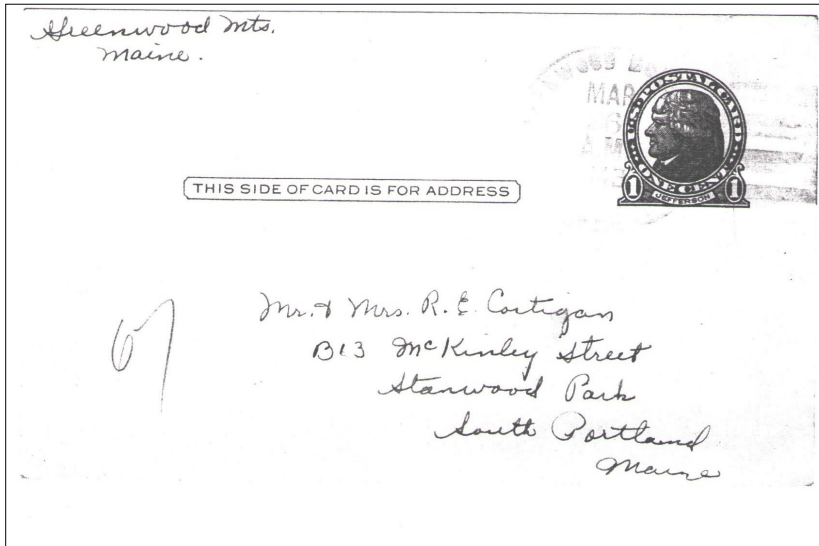 Greenwood Mts.
Maine.
MAR
6
A.M
U.S. POSTAL CARD
ONE CENT
1 1
JEFFERSON
THIS SIDE OF CARD IS FOR ADDRESS
Mr. & Mrs. R. E. Costigan
B13 McKinley Street
Stanwood Park
South Portland
Maine